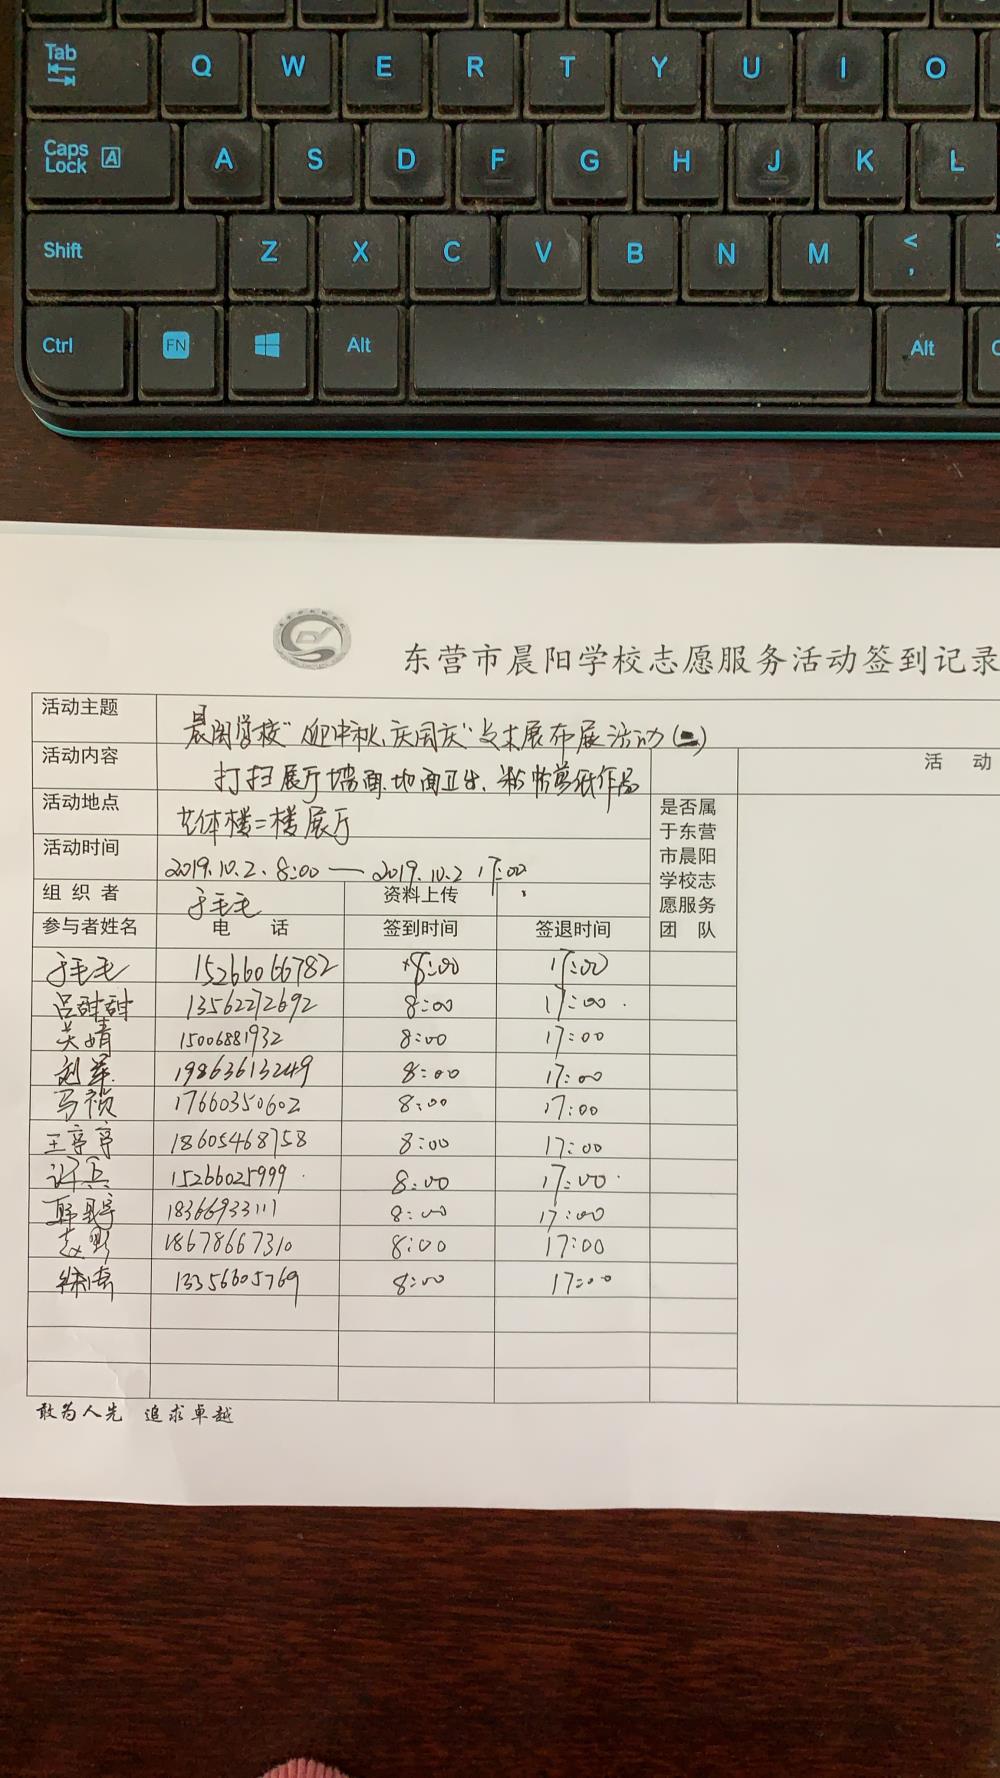 Tab Q W E R T Y U I O
Caps Lock A A S D F G H J K L
Shift Z X C V B N M < ,
Ctrl FN Alt Alt
东营市晨阳学校志愿服务活动签到记录
活动主题 晨阳学校“迎中秋、庆国庆”艺术展布展活动(二)
活动内容 打扫展厅墙面、地面卫生、粘贴剪纸作品
活动 动
活动地点 艺体楼二楼展厅
活动时间 2019.10.2、8:00 — 2019.10.2 17:00
是否属
于东营
市晨阳
学校志
愿服务
团 队
组 织 者 于毛毛 资料上传
参与者姓名 电 话 签到时间 签退时间
于毛毛 15266066782 8:00 17:00
吕甜甜 13562272692 8:00 17:00
吴婧 15006881932 8:00 17:00
赵军 19863613249 8:00 17:00
马祯 17660350602 8:00 17:00
王亭亭 18605468758 8:00 17:00
许兵 15266025999 8:00 17:00
18366933111 8:00 17:00
18678667310 8:00 17:00
13356605769 8:00 17:00
敢为人先 追求卓越